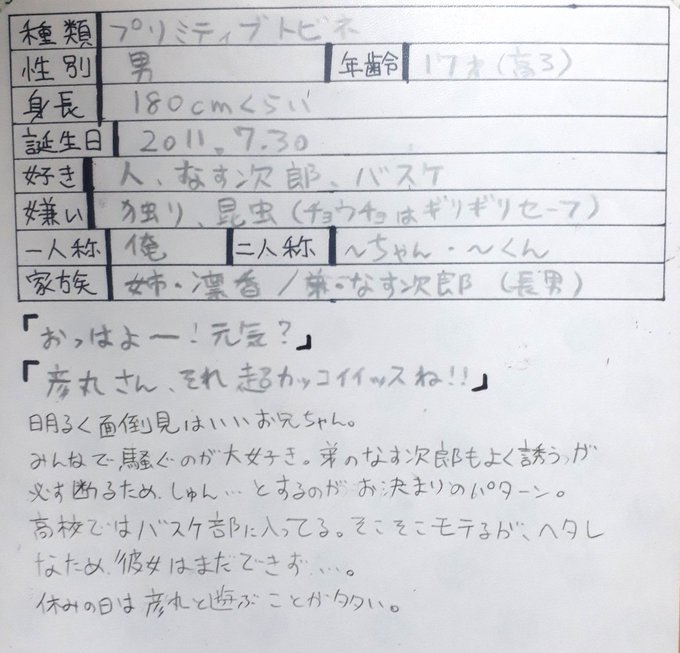 種類 プリミティブトビネ
性別 男 年齢 17才(高3)
身長 180cmくらい
誕生日 2011.7.30
好き 人、なす次郎、バスケ
嫌い 独り、昆虫(チョウチョはギリギリセーフ)
一人称 俺 二人称 〜ちゃん・〜くん
家族 姉・凛香/弟・なす次郎(長男)
「おっはよー!元気?」
「彦丸さん、それ超カッコイイッスね!!」
明るく面倒見はいいお兄ちゃん。
みんなで騒ぐのが大好き。弟のなす次郎もよく誘うが
必ず断るため、しゅん…とするのがお決まりのパターン。
高校ではバスケ部に入ってる。そこそこモテるが、ヘタレ
なため、彼女はまだできず…。
休みの日は彦丸と遊ぶことが多い。